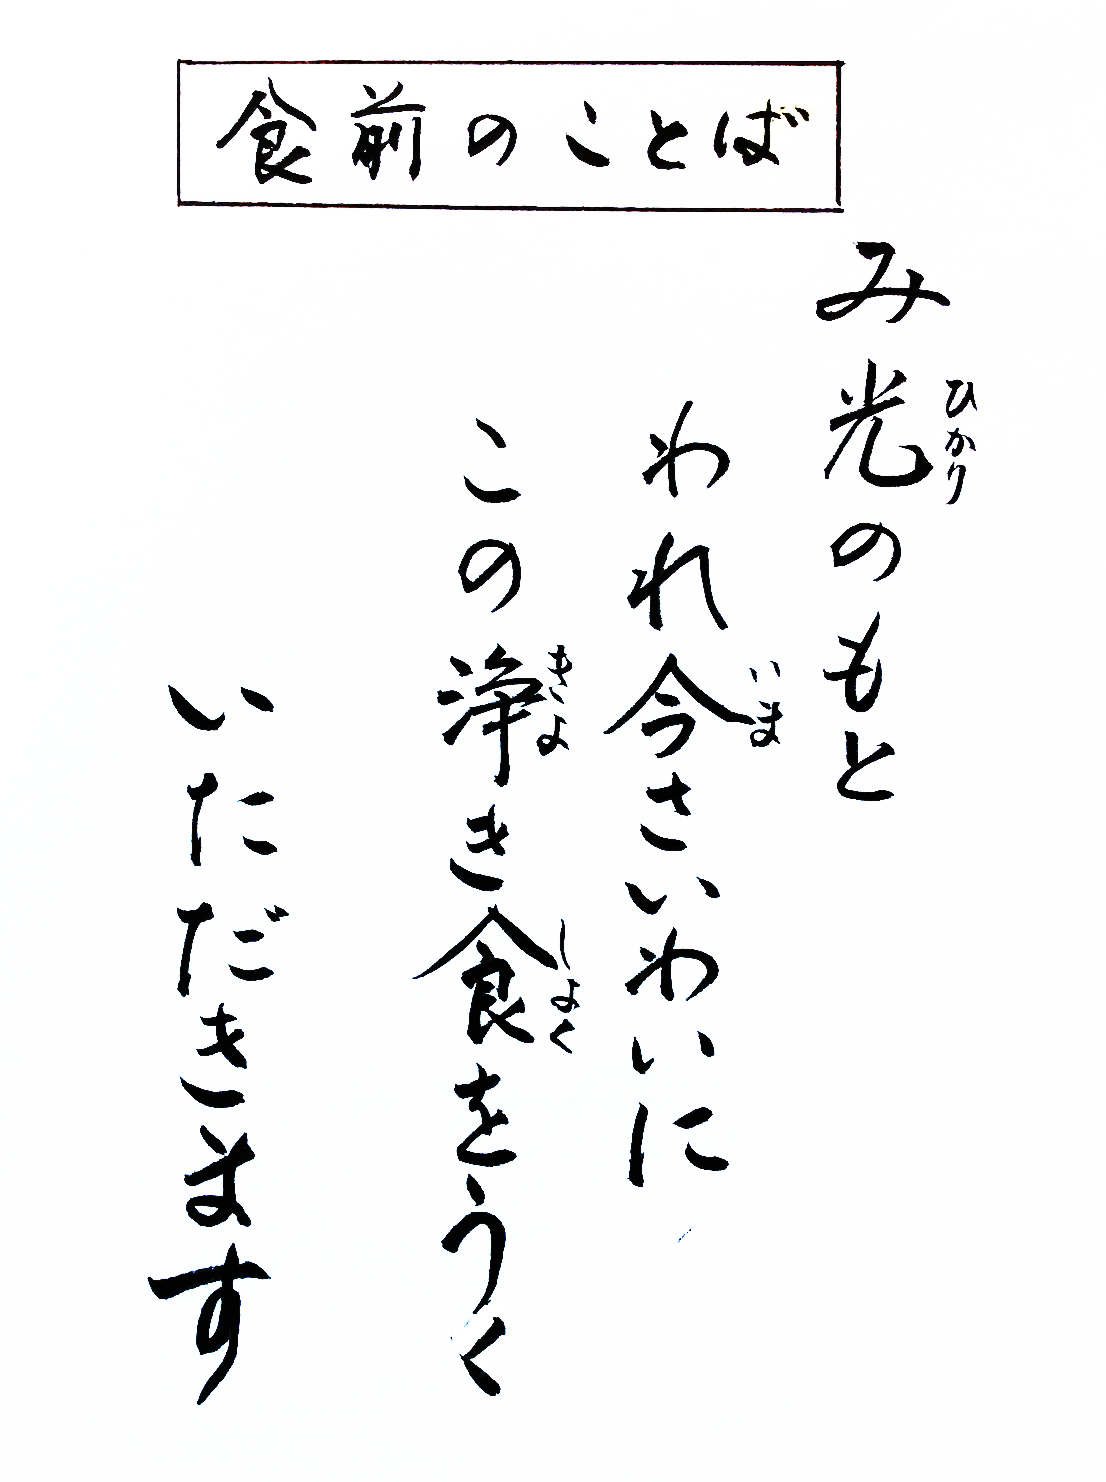 食前のことば
み光のもと
ひかり
われ今さいわいに
いま
この浄き食をうく
きよ
しょく
いただきます